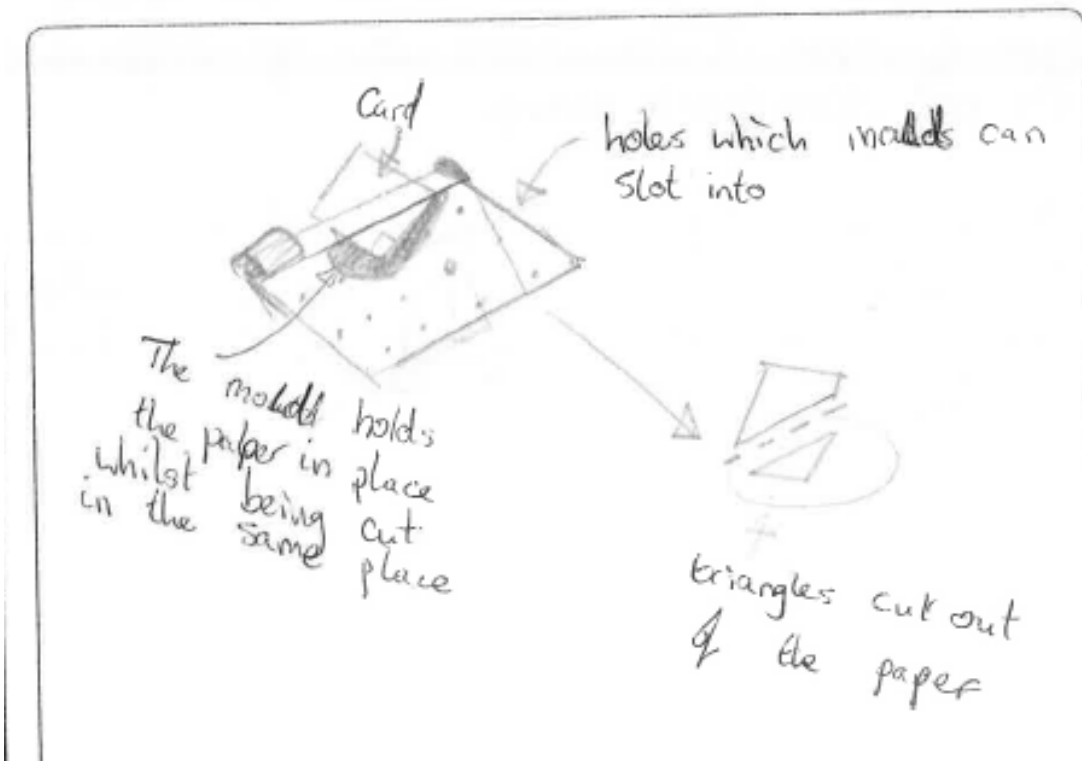 Card
holes which moulds can
slot into
The mould holds
the paper in place
whilst being cut
in the same place
triangles cut out
of the paper